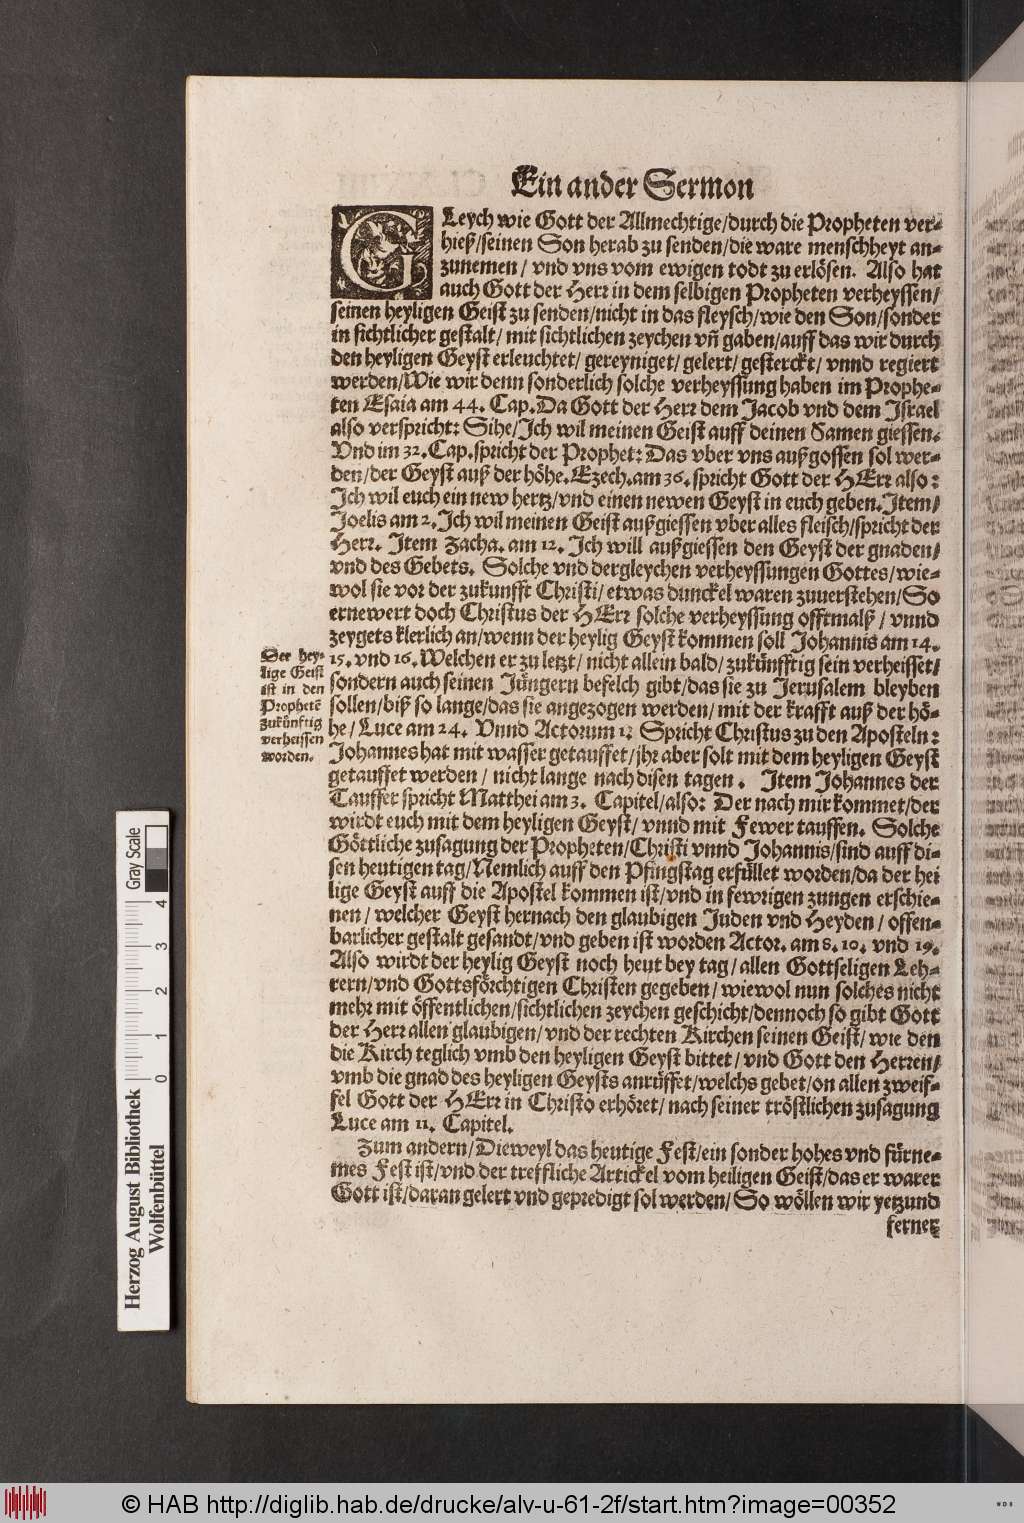 Ein ander Sermon
GLeych wie Gott der Allmechtige/durch die Propheten ver-
hieß/seinen Son herab zu senden/die ware menschheyt an-
zunemen/ vnd vns vom ewigen todt zu erlösen. Also hat
auch Gott der Herr in dem selbigen Propheten verheyssen/
seinen heyligen Geist zu senden/nicht in das fleysch/wie den Son/sonder
in sichtlicher gestalt/ mit sichtlichen zeychen vñ gaben/auff das wir durch
den heyligen Geyst erleuchtet/ gereyniget/ gelert/ gesterckt/ vnnd regiert
werden/Wie wir denn sonderlich solche verheyssung haben im Prophe-
ten Esaia am 44. Cap. Da Gott der Herr dem Jacob vnd dem Israel
also verspricht: Sihe/Ich wil meinen Geist auff deinen Samen giessen.
Vnd im 32. Cap. spricht der Prophet: Das vber vns außgossen sol wer-
den/der Geyst auß der höhe. Ezech. am 36. spricht Gott der HErr also:
Ich wil euch ein new hertz/vnd einen newen Geyst in euch geben. Item/
Joelis am 2. Ich wil meinen Geist außgiessen vber alles fleisch/spricht der
Herr. Item Zacha. am 12. Ich will außgiessen den Geyst der gnaden/
vnd des Gebets. Solche vnd dergleychen verheyssungen Gottes/wie-
wol sie vor der zukunfft Christi/ etwas dunckel waren zuuerstehen/So
ernewert doch Christus der HErr solche verheyssung offtmalß/ vnnd
zeygets klerlich an/wenn der heylig Geyst kommen soll Johannis am 14.
15. vnd 16. Welchen er zu letzt/ nicht allein bald/ zukünfftig sein verheisset/
sondern auch seinen Jüngern befelch gibt/das sie zu Jerusalem bleyben
sollen/biß so lange/das sie angezogen werden/ mit der krafft auß der hö-
he/ Luce am 24. Vnnd Actorum 1: Spricht Christus zu den Aposteln:
Johannes hat mit wasser getauffet/jhr aber solt mit dem heyligen Geyst
getauffet werden/ nicht lange nach disen tagen. Item Johannes der
Tauffer spricht Matthei am 3. Capitel/also: Der nach mir kommet/der
wirdt euch mit dem heyligen Geyst/ vnnd mit Fewer tauffen. Solche
Göttliche zusagung der Propheten/Christi vnnd Johannis/sind auff di-
sen heutigen tag/Nemlich auff den Pfingstag erfüllet worden/da der hei
lige Geyst auff die Apostel kommen ist/vnd in fewrigen zungen erschie-
nen/ welcher Geyst hernach den glaubigen Juden vnd Heyden/ offen-
barlicher gestalt gesandt/vnd geben ist worden Actor. am 8. 10. vnd 19.
Also wirdt der heylig Geyst noch heut bey tag/ allen Gottseligen Leh-
rern/vnd Gottsförchtigen Christen gegeben/ wiewol nun solches nicht
mehr mit öffentlichen/sichtlichen zeychen geschicht/dennoch so gibt Gott
der Herr allen glaubigen/ vnd der rechten Kirchen seinen Geist/ wie den
die Kirch teglich vmb den heyligen Geyst bittet/ vnd Gott den Herren/
vmb die gnad des heyligen Geysts anrüffet/welchs gebet/on allen zweif-
fel Gott der HErr in Christo erhöret/ nach seiner tröstlichen zusagung
Luce am 11. Capitel.
Zum andern/Dieweyl das heutige Fest/ein sonder hohes vnd fürne-
mes Fest ist/vnd der treffliche Artickel vom heiligen Geist/das er warer
Gott ist/daran gelert vnd gepredigt sol werden/ So wöllen wir yetzund
ferner
Der hey-
lige Geist
ist in den
Prophetē
zukünftig
verheissen
worden.
Gray Scale
0 1 2 3 4
Herzog August Bibliothek
Wolfenbüttel
© HAB http://diglib.hab.de/drucke/alv-u-61-2f/start.htm?image=00352